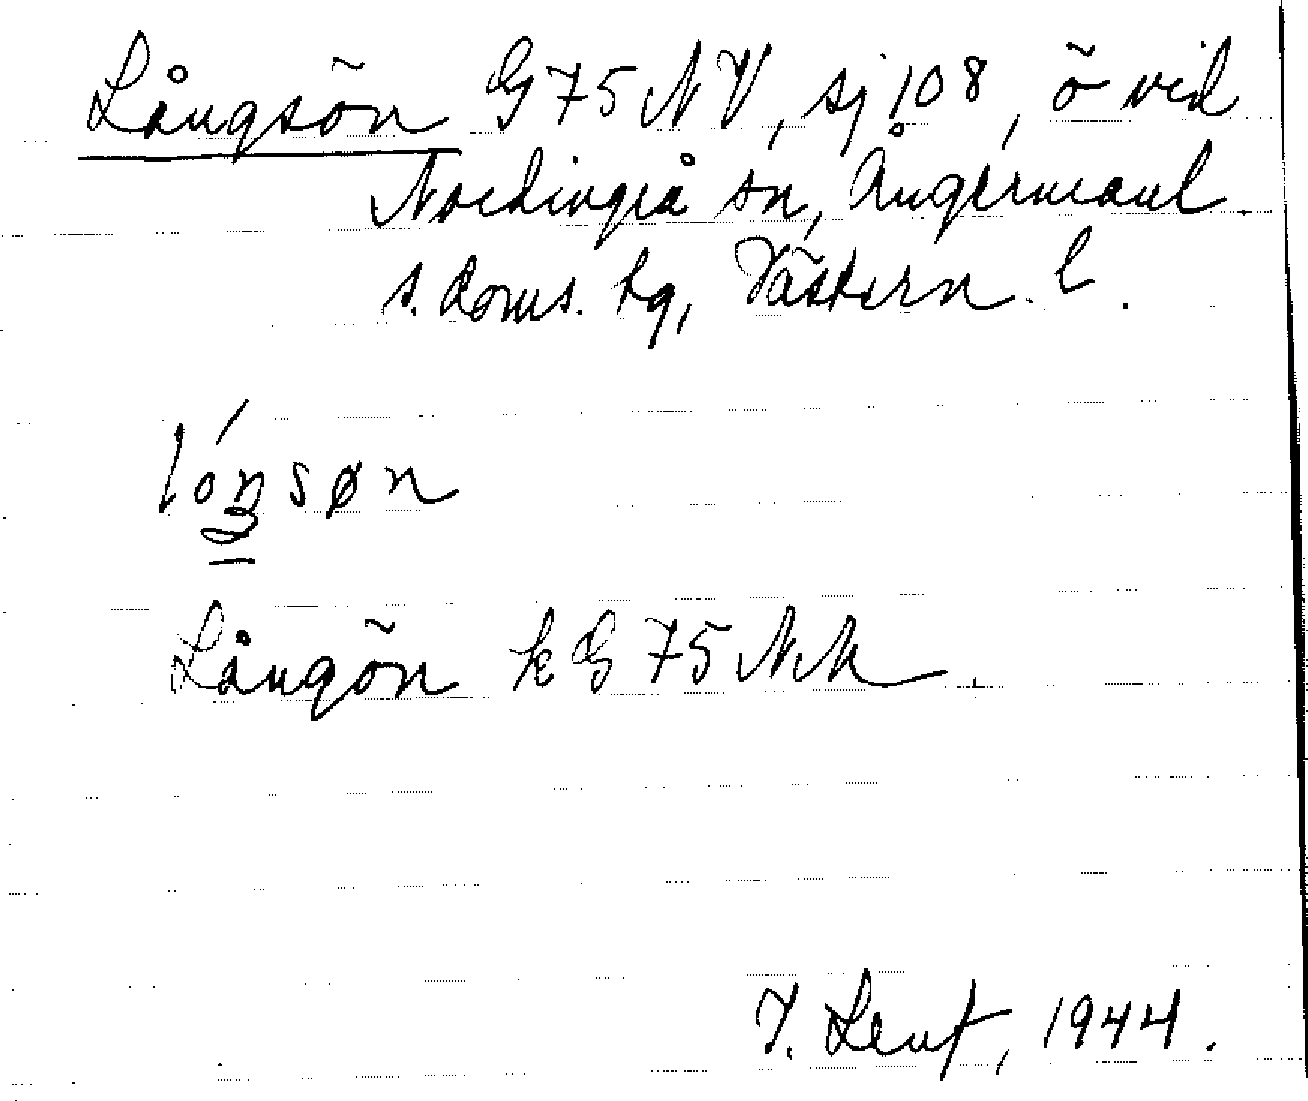 Långsön G 75 NV, sj 108, ö vid
Nordingrå sn, Ångermanl.
s. doms. tg, Västern. l.
lóŋsøn
Långön k G 75 NV.
1944.